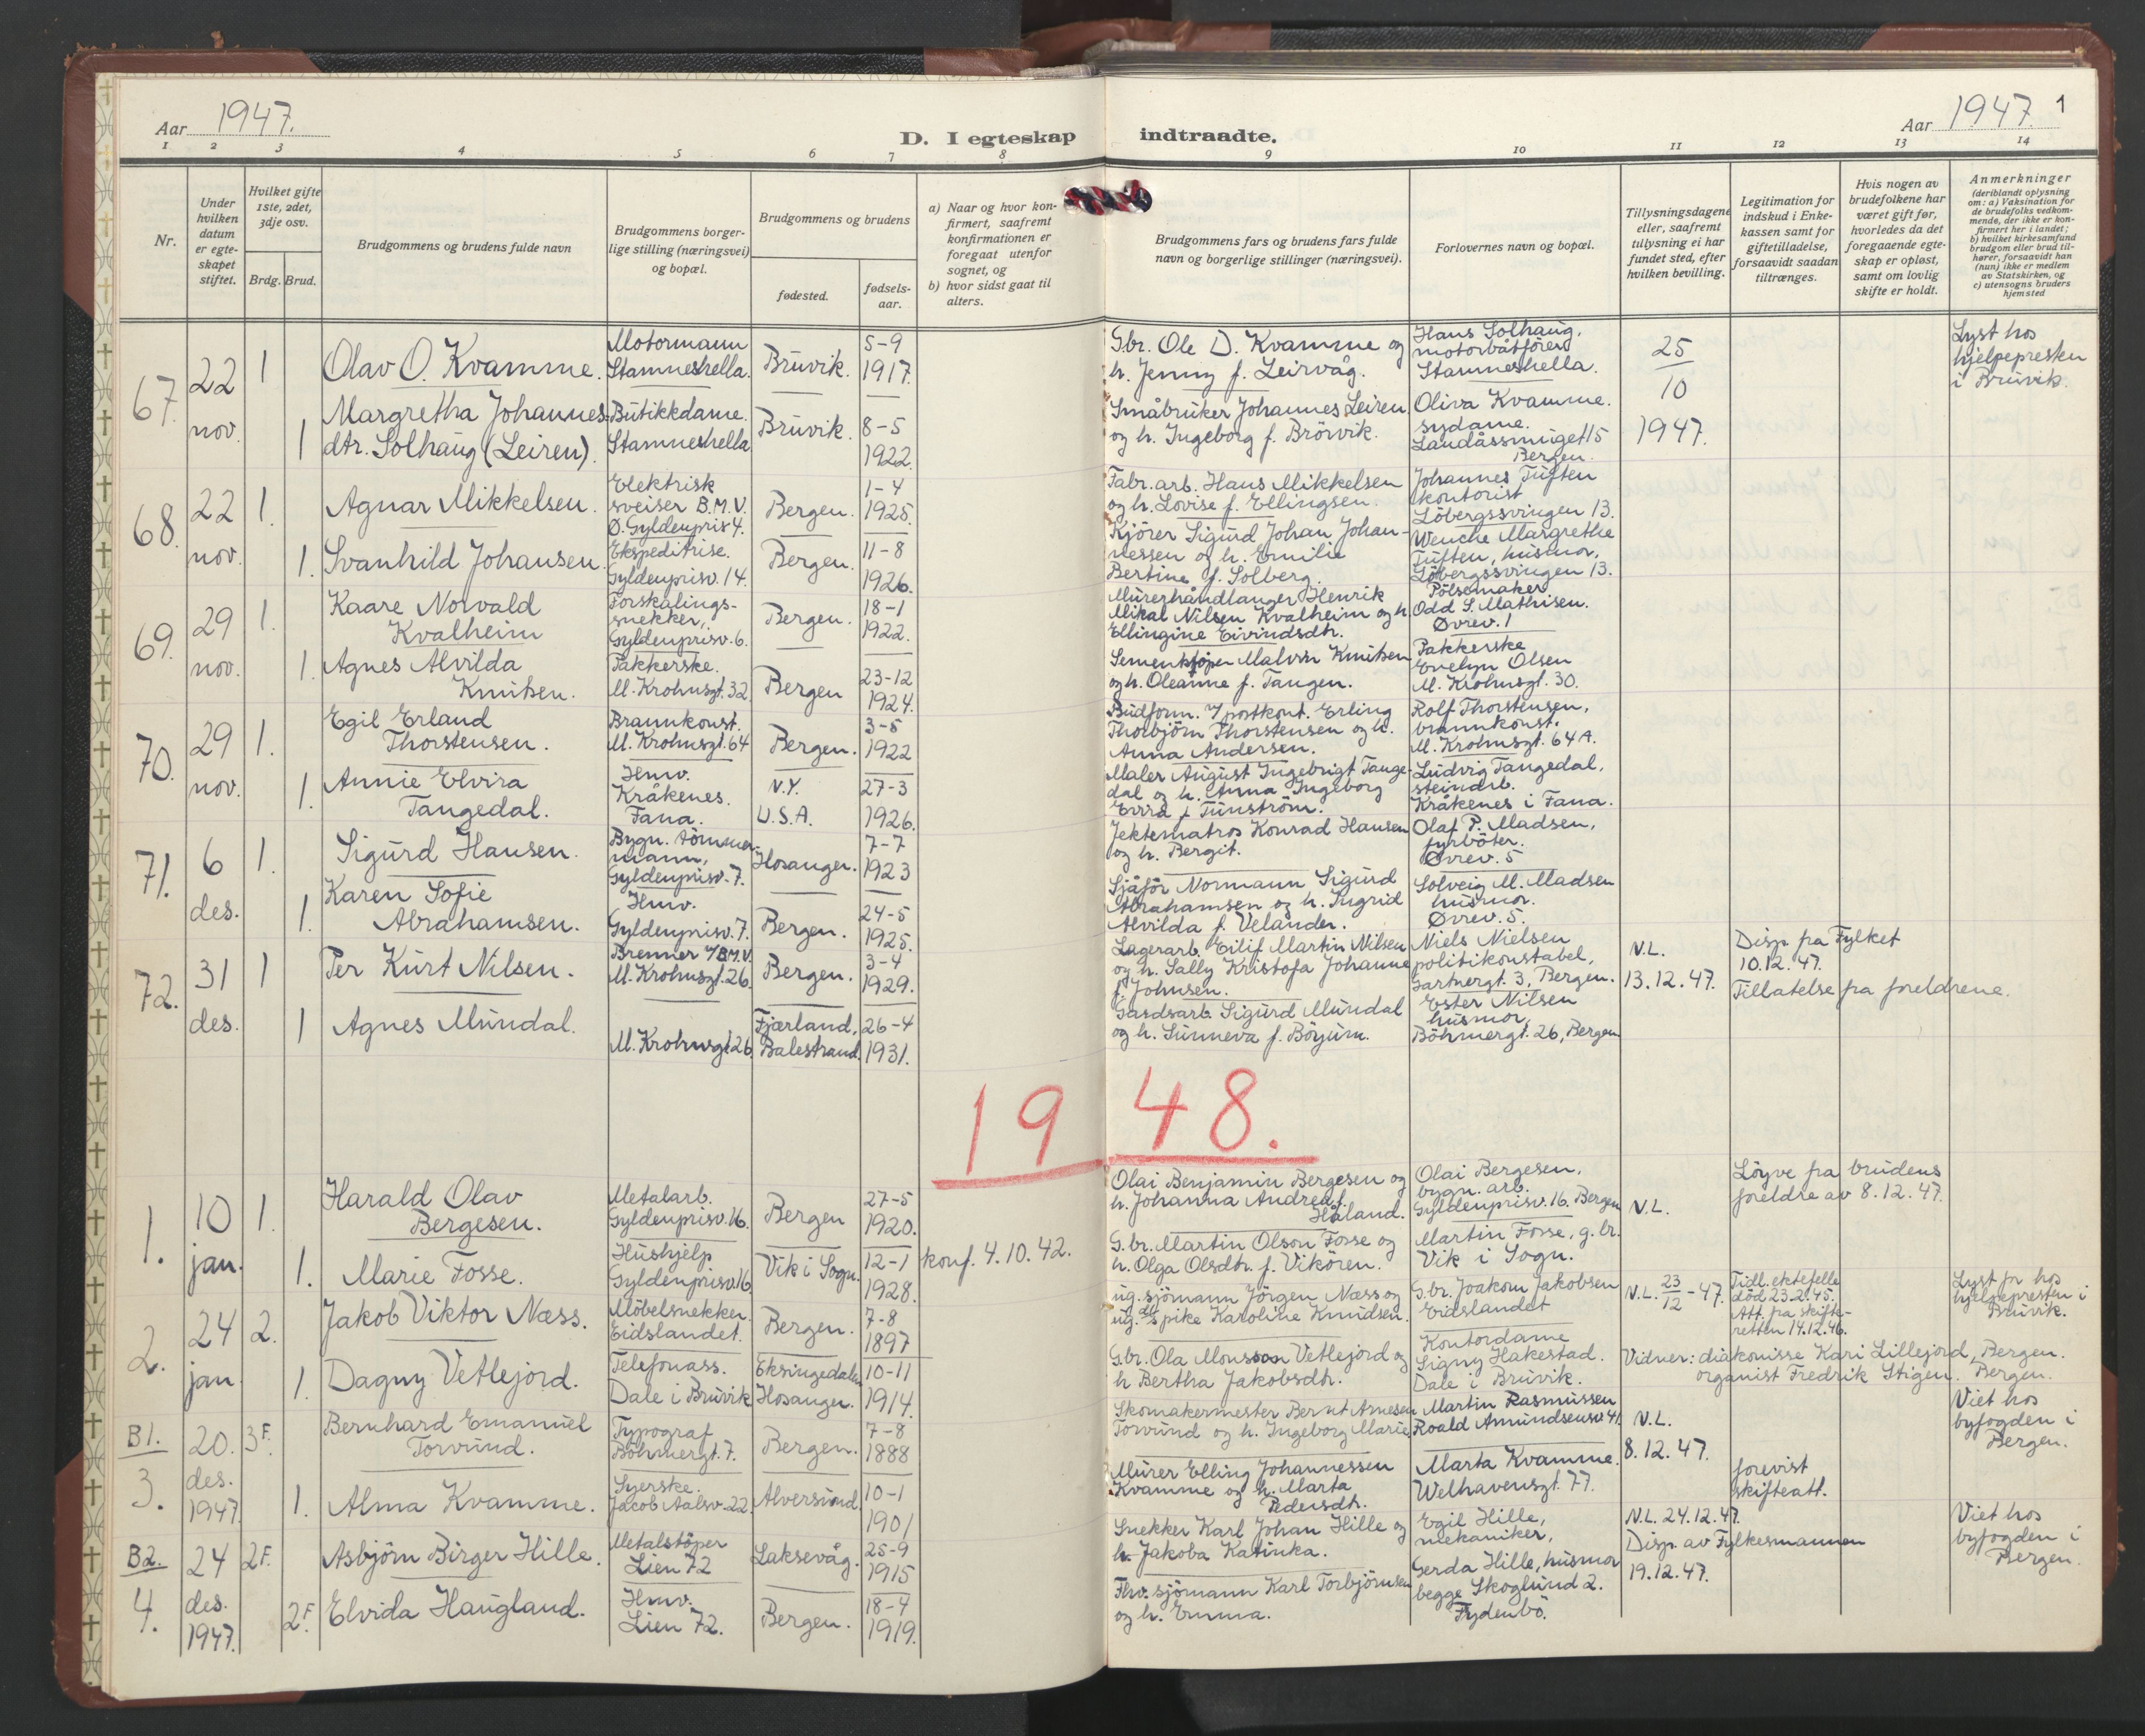 Aar 1947.
D. I egteskap indtraadte.
Aar 1947. 1
1 2 3 4 5 6 7 8 9 10 11 12 13 14
Nr.
Under hvilken datum er egte-skapet stiftet.
Hvilket gifte 1ste, 2det, 3dje osv.
Brdg. Brud.
Brudgommens og brudens fulde navn
Brudgommens borger-
lige stilling (næringsvei)
og bopæl.
Brudgommens og brudens
fødested.
fødsels-
aar.
a) Naar og hvor kon-
firmert, saafremt
konfirmationen er
foregaat utenfor
sognet, og
b) hvor sidst gaat til
alters.
Brudgommens fars og brudens fars fulde
navn og borgerlige stillinger (næringsvei).
Forlovernes navn og bopæl.
Tillysningsdagene
eller, saafremt
tillysning ei har
fundet sted, efter
hvilken bevilling.
Legitimation for
indskud i Enke-
kassen samt for
giftetilladelse,
forsaavidt saadan
tiltrænges.
Hvis nogen av
brudefolkene har
været gift før,
hvorledes da det
foregaaende egte-
skap er opløst,
samt om lovlig
skifte er holdt.
Anmerkninger
(deriblandt oplysning
om: a) Vaksination for
de brudefolks vedkom-
mende, der ikke er kon-
firmert her i landet;
b) hvilket kirkesamfund
brudgom eller brud til-
hører, forsaavidt han
(hun) ikke er medlem
av Statskirken, og
c) utensogns bruders
hjemsted
67. 22 nov.
1 Olav O. Kvamme.
Motormann
Stamneshella.
Bruvik.
5-9
1917.
Gbr. Ole D. Kvamme og
h. Jenny f. Leirvåg.
Hans Solhaug,
motorbåtfører
Stamneshella.
25
10
1947.
Lyst hos
hjelpepresten
i Bruvik.
1 Margretha Johannes-
dtr. Solhaug (Leiren).
Butikkdame.
Stamneshella
Bruvik.
8-5
1922.
Småbruker Johannes Leiren
og h. Ingeborg f. Brörvik.
Oliva Kvamme.
sydame.
Landåssmuget 15
Bergen.
68. 22 nov.
1. Agnar Mikkelsen.
Elektrisk
sveiser B.M.V.
Ø. Gyldenpris 4.
Bergen.
1-4
1925.
Fabr.arb. Hans Mikkelsen
og h. Lovise f. Ellingsen.
Johannes Tuften
kontorist
Löbergssvingen 13.
1. Svanhild Johansen.
Ekspeditrise.
Gyldenprisv. 14.
Bergen.
11-8
1926.
Kjörer Sigurd Johan Johan-
nessen og h. Emilie
Bertine f. Solberg.
Wenche Margrethe
Tuften, husmor,
Löbergssvingen 13.
69. 29 nov.
1. Kaare Norvald
Kvalheim
Forskalings-
snekker,
Gyldenprisv. 6.
Bergen.
18-1
1922.
Murerhåndlanger Henrik
Mikal Nilsen Kvalheim og h.
Ellingine Eivindsdtr.
Pölsemaker
Odd S. Mathisen.
Øvrev. 1
1. Agnes Alvilda
Knutsen.
Pakkerske.
M. Krohnsgt. 32
Bergen
23-12
1924.
Malvin Knutsen
og h. Oleanne f. Tangen.
Pakkerske
Evelyn Olsen
M. Krohnsgt. 30.
70. 29 nov.
1. Egil Erland
Thorstensen.
Brannkonst.
M. Krohnsgt. 64
Bergen.
3-5
1922
Budform. v/ postkont. Erling
Thorbjörn Thorstensen og h.
Anna Andersen.
Rolf Thorstensen,
brannkonst.
M. Krohnsgt. 64 A.
1. Annie Elvira
Tangedal.
Hmv.
Kråkenes.
Fana.
N.Y.
U.S.A.
27-3
1926.
Maler August Ingebrigt Tange-
dal og h. Anna Ingeborg
f. Tunström.
Ludvig Tangedal,
steinarb.
Kråkenes i Fana.
71. 6 des.
1. Sigurd Hansen.
Bygn. tömmer-
mann,
Gyldenprisv. 7.
Hosanger.
7-7
1923
Jektematros Konrad Hansen
og h. Bergit.
Olaf P. Madsen,
fyrböter.
Øvrev. 5
1. Karen Sofie
Abrahamsen.
Hmv.
Gyldenprisv. 7.
Bergen.
24-5
1925.
Sjåför Normann Sigurd
Abrahamsen og h. Ingrid
Alvilda f. Velander.
Solveig M. Madsen
husmor.
Øvrev. 5.
72. 31 des.
1 Per Kurt Nilsen.
Brenner v/ B.M.V.
M. Krohnsgt. 26
Bergen.
3-4
1929.
Lagerarb. Eilif Martin Nilsen
og h. Sally Kristofa Johanne
f. Johnsen.
Niels Nielsen
politikonstabel,
Gartnergt. 3, Bergen.
N.L.
13.12.47.
Disp. fra Fylket
10.12.47.
Tillatelse fra foreldrene.
1 Agnes Mundal.
M. Krohnsgt. 26
Fjærland,
Balestrand.
26-4
1931.
Gardsarb. Sigurd Mundal
og h. Sunneva f. Böyum.
Ester Nilsen
husmor,
Böhmergt. 26, Bergen
1948.
1. 10 jan.
1. Harald Olav
Bergesen.
Metalarb.
Gyldenprisv. 16.
Bergen
27-5
1920.
Olai Benjamin Bergesen og
h. Johanna Andrea f.
Håland.
Olai Bergesen,
bygn. arb.
Gyldenprisv. 16. Bergen
N.L.
Löyve fra brudens
foreldre av 8.12.47.
1. Marie Fosse.
Hushjelp
Gyldenprisv. 16
Vik i Sogn.
12-1
1928.
konf. 4.10.42.
G.br. Martin Olson Fosse og
h. Olga Olsdtr. f. Vikören.
Martin Fosse, g.br.
Vik i Sogn.
2. 24 jan
2. Jakob Viktor Næss.
Möbelsnekker
Eidslandet.
Bergen.
7-8
1897
ug. sjömann Jörgen Næss og
ug. pike Karoline Knudsen.
G.br. Joakom Jakobsen
Eidslandet
N.L. 23/12-47.
Tidl. ektefelle
död 23.2.45.
Att. fra skifte-
retten 14.12.46.
Lyst for hos
hjelpepresten i
Bruvik.
1. Dagny Vetlejord.
Telefonass.
Dale i Bruvik
Eksingedalen
Hosanger.
10-11
1914.
G.br. Ola Monsson Vetlejord og
h Bertha Jakobsdtr.
Kontordame
Signy Hakestad.
Dale i Bruvik.
Vidner: diakonisse Kari Lillejord, Bergen.
organist Fredrik Stigen. Bergen.
B1.
3. 20. des. 1947
3F. Bernhard Emanuel
Torvund.
Typograf
Böhmergt. 7.
Bergen.
7-8
1888
Skomakermester Bernt Arnesen
Torvund og h. Ingeborg Marie
Martin Rasmussen
Roald Amundsensv. 41
N.L.
8.12.47.
Viet hos
byfogden i
Bergen.
1. Alma Kvamme.
Syerske.
Jacob Aalsv. 22
Alversund
10-1
1901
Murer Elling Johannessen
Kvamme og h. Marta
Pedersdtr.
Marta Kvamme.
Welhavensgt. 77.
forevist
skifteatt.
B2.
4. 24 des. 1947.
2F. Asbjörn Birger Hille.
Metalstöper
Lien 72
Laksevåg.
25-9
1915
Snekker Karl Johan Hille og
h. Jakoba Katinka.
Egil Hille,
mekaniker,
N.L. 24.12.47.
Disp. av Fylkesmannen
19.12.47.
Viet hos
byfogden i
Bergen.
2F Elvida Haugland.
Hmv.
Lien 72.
Bergen.
18-4
1919.
Fhv. sjömann Karl Torbjörnsen
og h. Emma.
Gerda Hille, husmor
begge Skoglund 2.
Fydenbö.